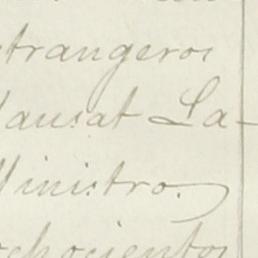 strangeros
lausat La-
Ministro.
ochocientos